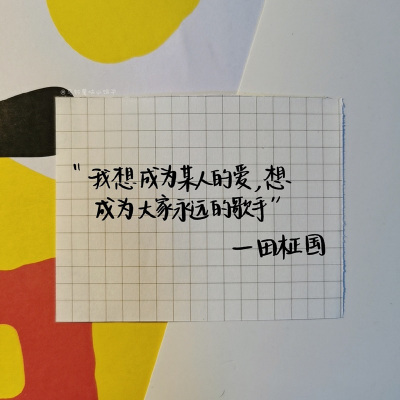 "我想成为某人的爱,想
成为大家永远的歌手"
一田柾国